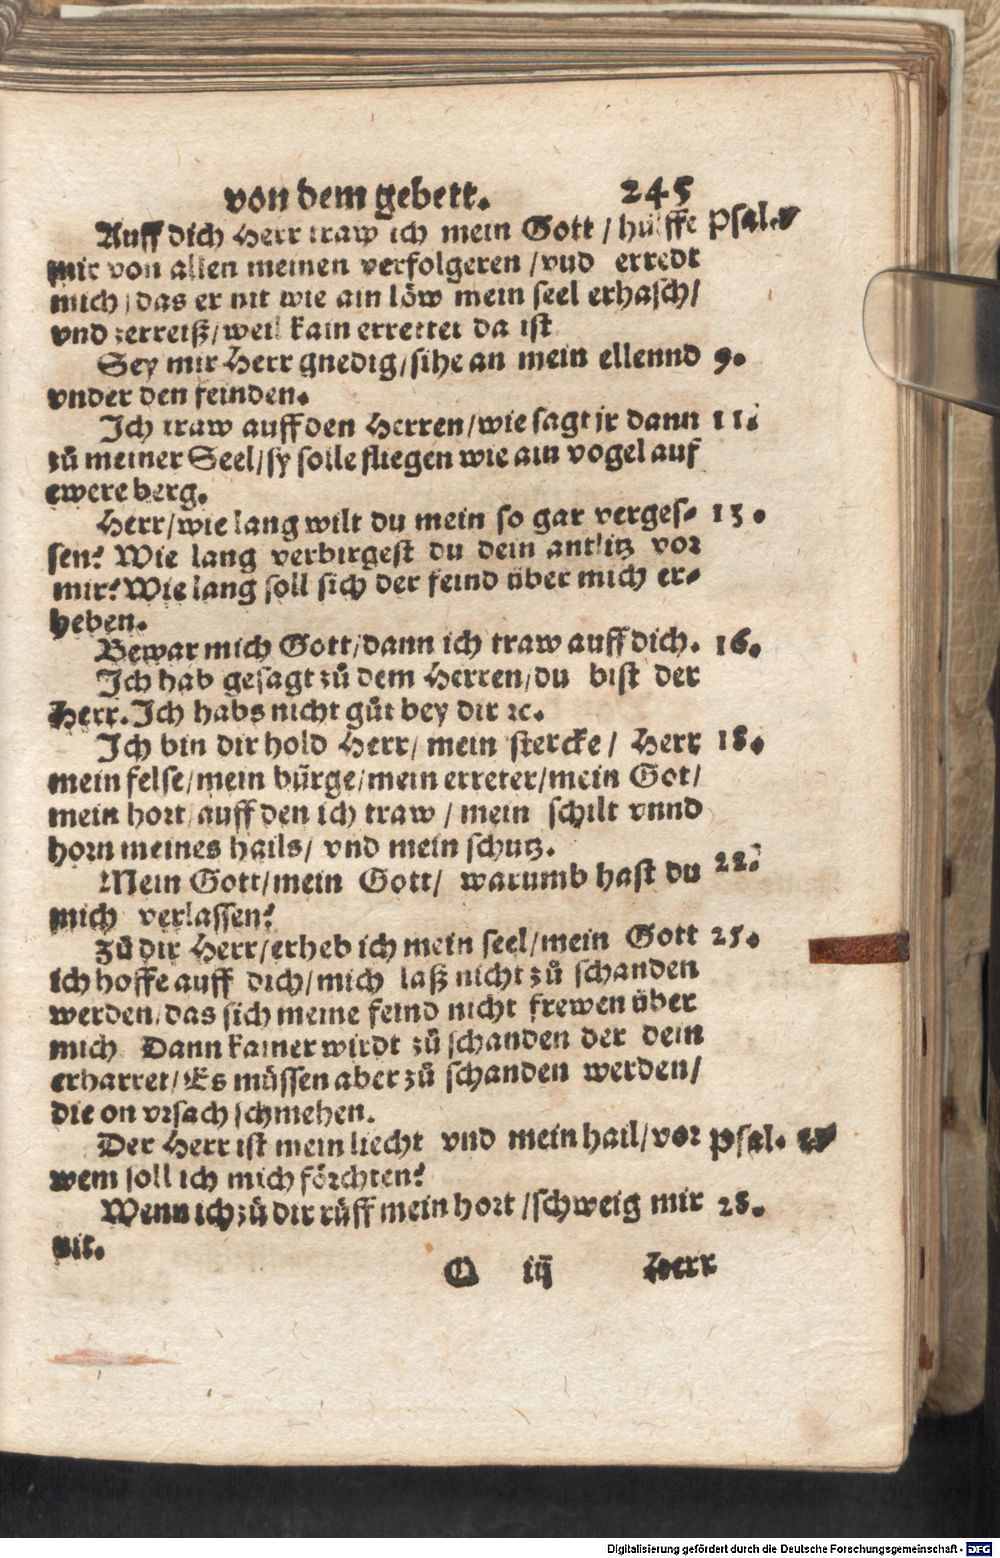 von dem gebett. 245
Auff dich Herr traw ich mein Gott / hülffe Psal.
mir von allen meinen verfolgeren / vnd erredt
mich / das er nit wie ain löw mein seel erhasch /
vnd zerreiß / weil kain errettet da ist
Sey mir Herr gnedig / sihe an mein ellennd 9.
vnder den feinden.
Ich traw auff den Herren / wie sagt jr dann 11.
zů meiner Seel / sy solle fliegen wie ain vogel auf
ewere berg.
Herr / wie lang wilt du mein so gar verges⸗ 13.
sen? Wie lang verbirgest du dein antlitz vor
mir? Wie lang soll sich der feind über mich er⸗
heben.
Bewar mich Gott / dann ich traw auff dich. 16.
Ich hab gesagt zů dem Herren / du bist der
Herr. Ich habs nicht gůt bey dir ꝛc.
Ich bin dir hold Herr / mein stercke / Herr 18.
mein felse / mein bürge / mein erreter / mein Got /
mein hort / auff den ich traw / mein schilt vnnd
horn meines hails / vnd mein schutz.
Mein Gott / mein Gott / warumb hast du 22.
mich verlassen?
Zů dir Herr / erheb ich mein seel / mein Gott 25.
ich hoffe auff dich / mich laß nicht zů schanden
werden / das sich meine feind nicht frewen über
mich. Dann kainer wirdt zů schanden der dein
erharret / Es müssen aber zů schanden werden /
die on vrsach schmehen.
Der Herr ist mein liecht vnd mein hail / vor Psal.
wem soll ich mich förchten?
Wenn ich zů dir rüff mein hort / schweig mir 28.
nit.
Q iij Herr
Digitalisierung gefördert durch die Deutsche Forschungsgemeinschaft - DFG